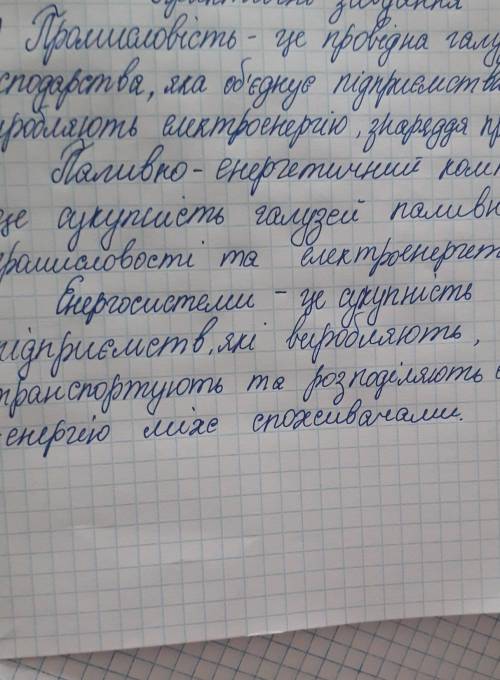 завдання
Промисловість - це провідна галу
сподарства, яка об'єднує підприємства
робляють електроенергію, знаряддя пр
Паливно - енергетичний комп
це сукупність галузей паливн
ромисловості та електроенергет
Енергосистеми - це сукупність
підприємств, які виробляють,
транспортують та розподіляють е
енергію між споживачами.